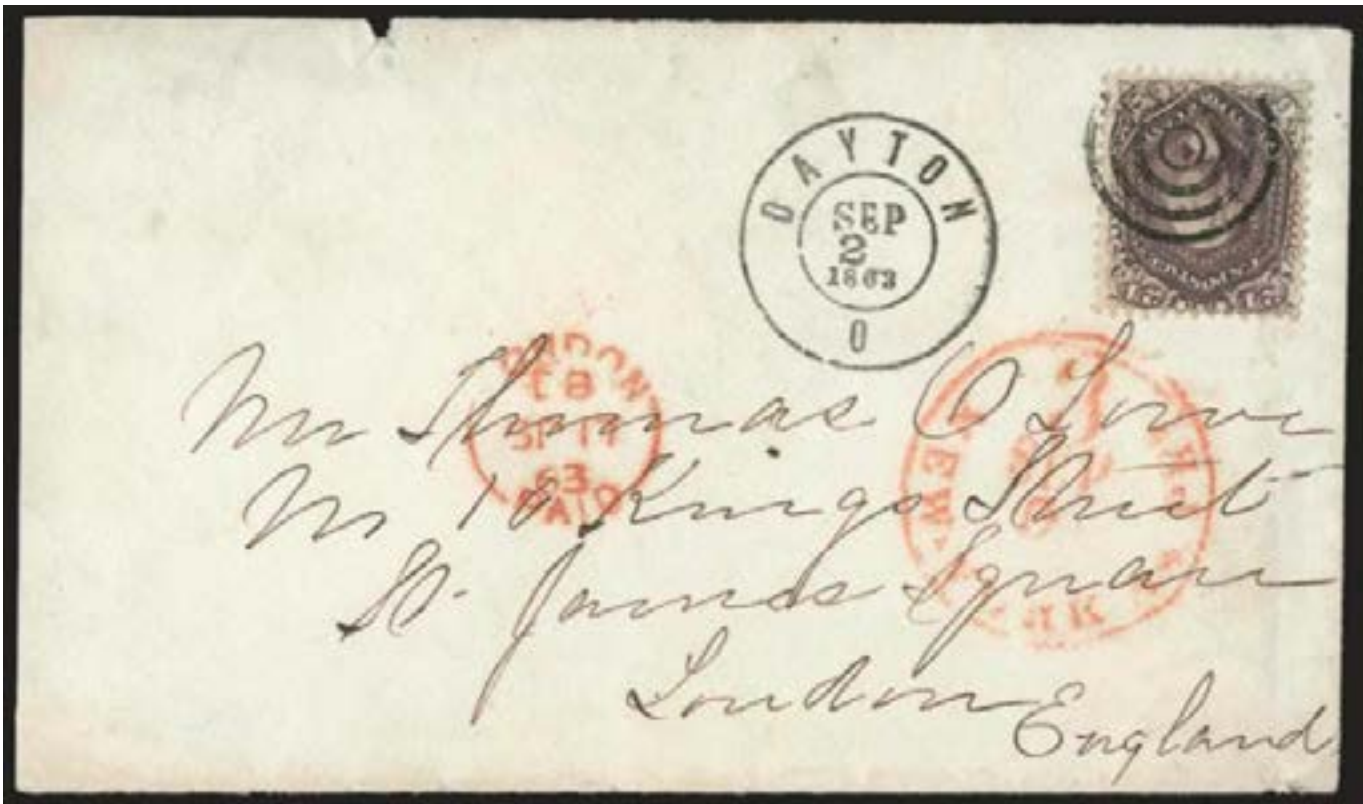 DAYTON
SEP
2
1863
O
LONDON
SP 17
63
PAID
NEW YORK
Mr Thomas O Lowe
No 18 Kings Street
St. James Square
London
England